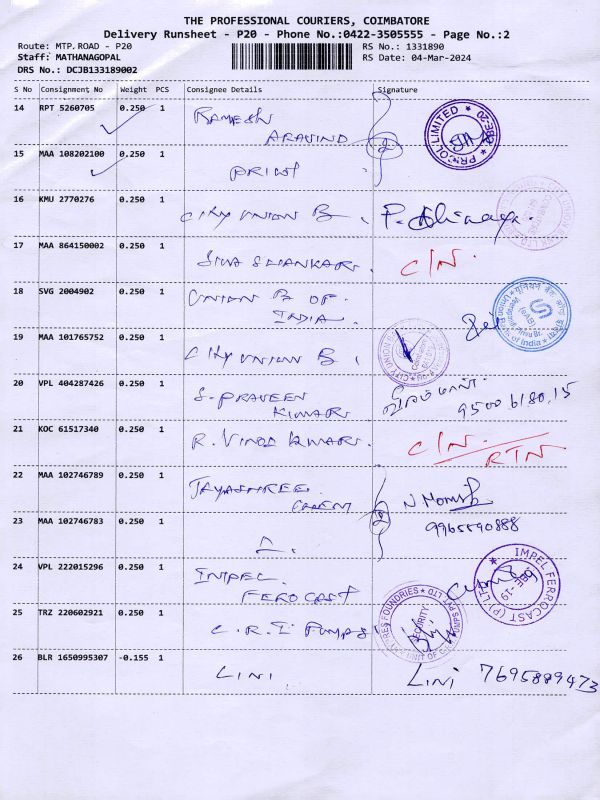 THE PROFESSIONAL COURIERS, COIMBATORE
Delivery Runsheet - P20 - Phone No.:0422-3505555 - Page No.:2
Route: MTP.ROAD - P20
RS No.: 1331890
Staff: MATHANAGOPAL
RS Date: 04-Mar-2024
DRS No.: DCJB133189002
S No Consignment No Weight PCS Consignee Details Signature
14 RPT 5260705 0.250 1 RAMESH
ARAVIND
15 MAA 108202100 0.250 1
PRICOL LIMITED
16 KMU 2770276 0.250 1 CITY UNION B.
17 MAA 864150002 0.250 1 SIVA SHANKAR. C/N.
18 SVG 2004902 0.250 1 UNION B OF
INDIA.
यूनियन बैंक Union Bank of India
19 MAA 101765752 0.250 1 CITY UNION B.
20 VPL 404287426 0.250 1 S. PRAVEEN
KUMAR 95006180.15
21 KOC 61517340 0.250 1 R. VINOD KUMAR. C/N.
RTN
22 MAA 102746789 0.250 1 JAYASHREE
23 MAA 102746783 0.250 1 9965590888
24 VPL 222015296 0.250 1 IMPEL
FEROCAST
IMPEL FERROCAST (P) LTD
CBE-19
25 TRZ 220602921 0.250 1 C.R.I PUMPS
SECURITY
26 BLR 1650995307 -0.155 1 LINI LINI 7695889473